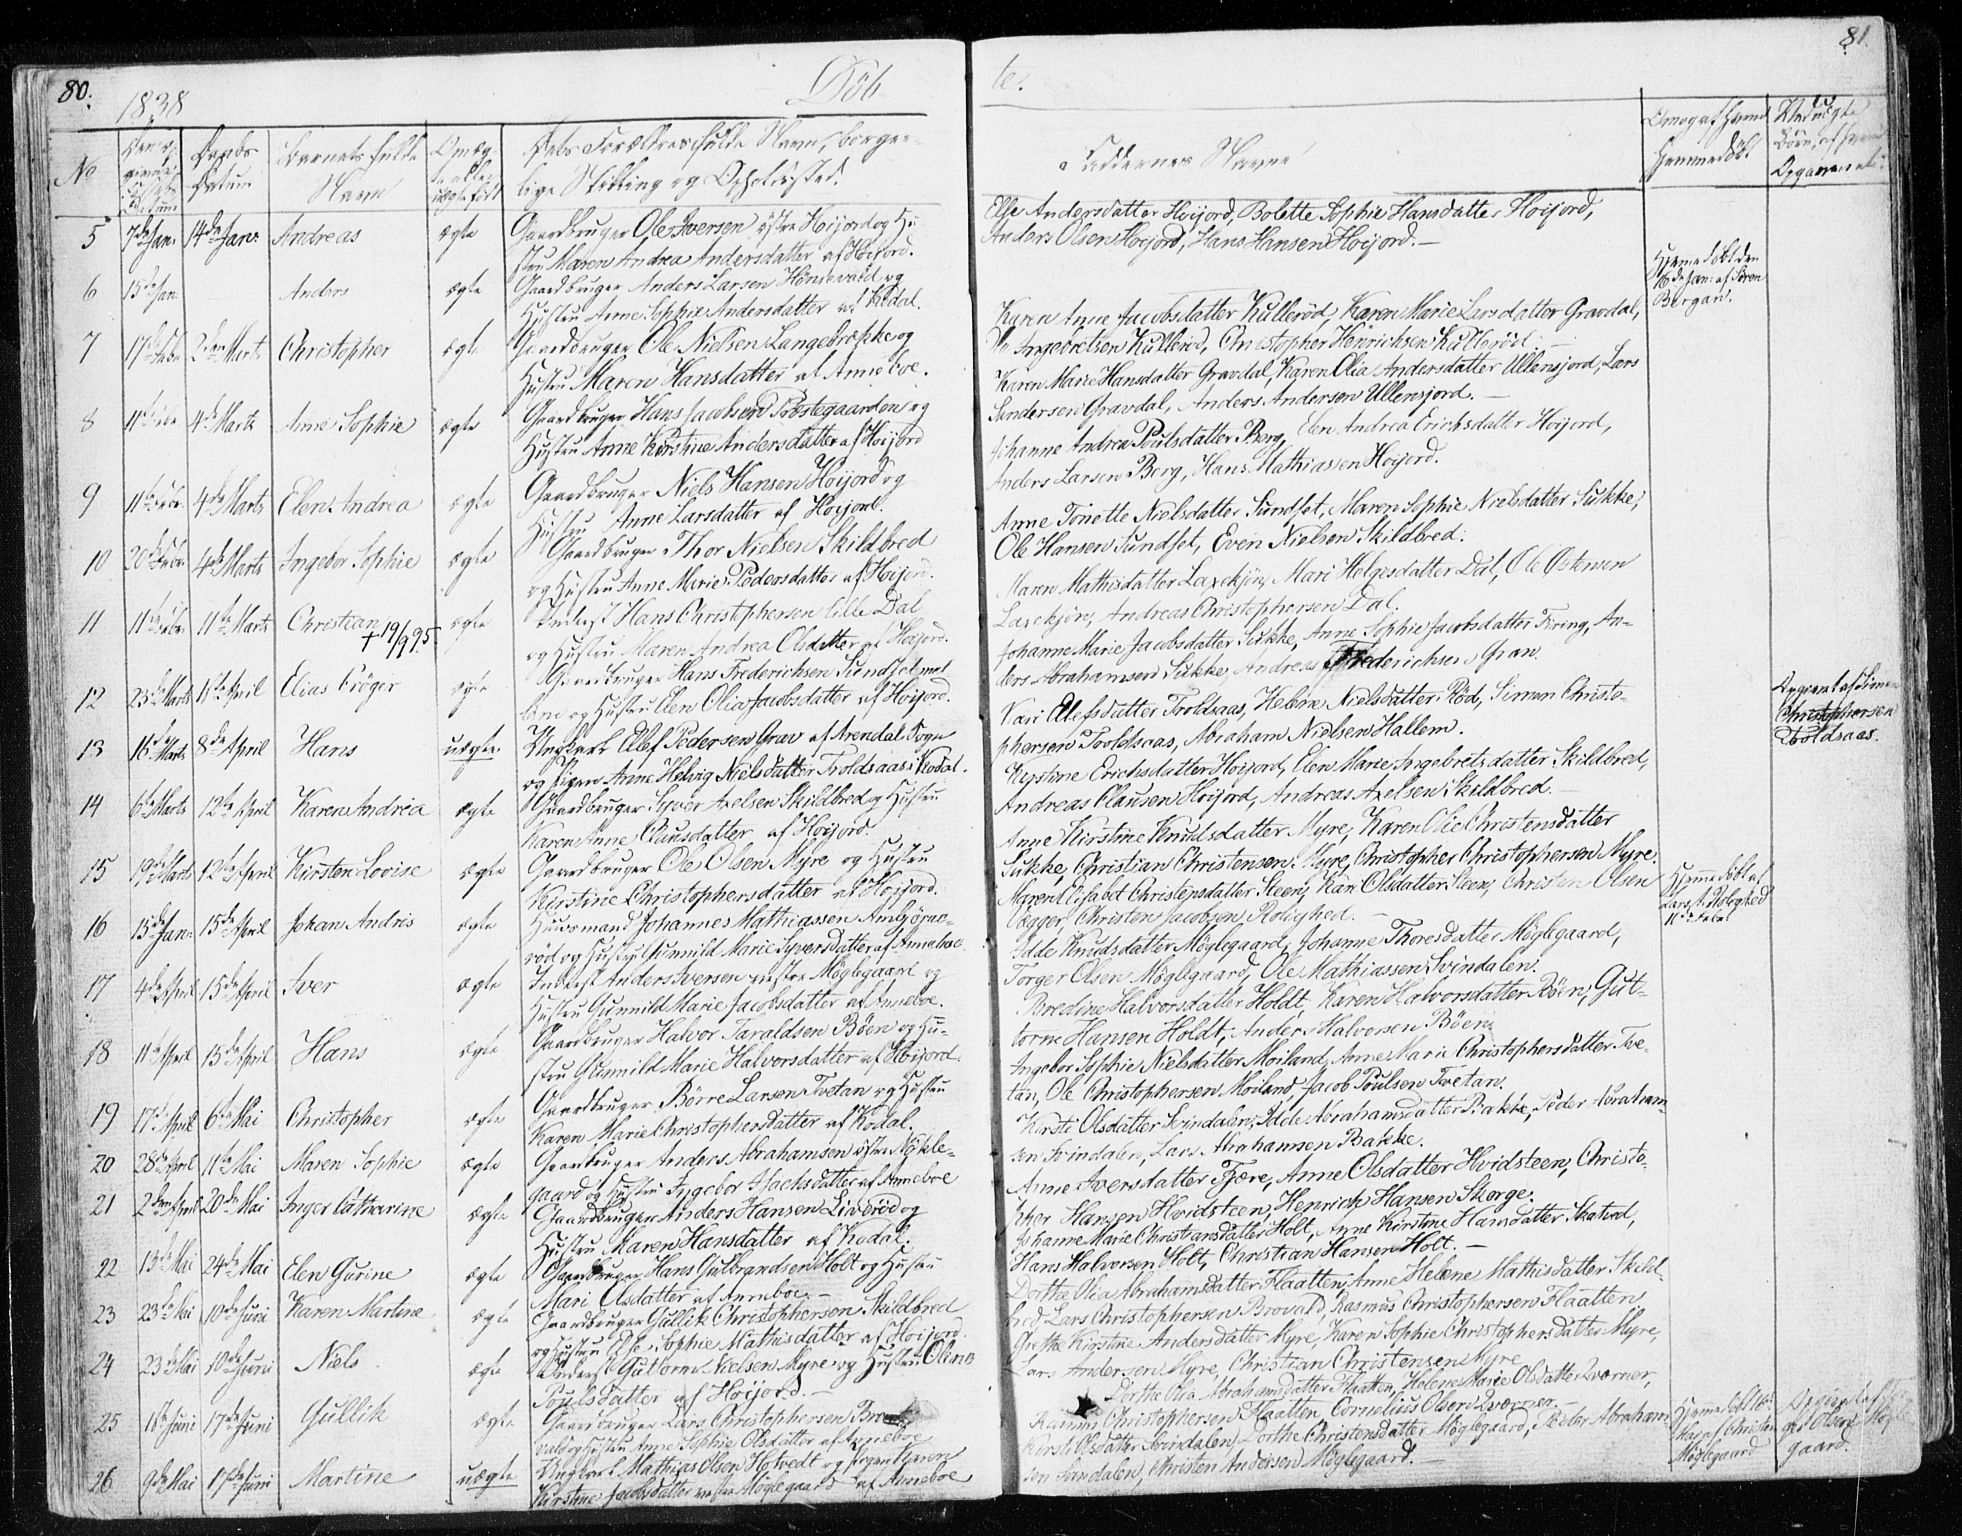 80.
1838
Döb
No
Barnets fulde Navn
Dets Forældres fulde Navn, borger-
lige Stilling og Opholdssted.
5 7de Jan. 14de Jan. Andreas ægte Gaardbruger Ole Iversen östre Hoijord og Hu-
stru Maren Andrea Andersdatter af Hoijord.
6 15de Jan. Anders ægte Gaardbruger Anders Larsen Hönsevald og
Hustru Anne Sophie Andersdatter af Kodal.
7 17de Febr. 2den Marts Christopher ægte Gaardbruger Ole Nielsen Langebrække og
Hustru Maren Hansdatter af Anneboe.
8 11te Febr. 4de Marts Anne Sophie ægte Gaardbruger Hans Jacobsen Præstegaarden og
Hustru Anne Kirstine Andersdatter af Hoijord
9 11te Febr. 4de Marts Elen Andrea ægte Gaardbruger Niels Hansen Hoijord og
Hustru Anne Larsdatter af Hoijord.
10 20de Febr. 4de Marts Ingebor Sophie ægte Gaardbruger Thor Nielsen Skildbred
og Hustru Anne Marie Pedersdatter af Hoijord.
11 11te Febr. 11te Marts Christian ægte Inderst Hans Christophersen lille Dal
+ 19/9 95.
og Hustru Maren Andrea Olsdatter af Hoijord.
12 23de Marts 1ste April Elias Fröger ægte Gaardbruger Hans Frederichsen Sundset mel-
lem og Hustru Elen Olia Jacobsdatter af Hoijord.
13 16de Marts 8de April Hans uægte Ungkarl Ellef Pedersen Grav af Arendal Sogn
og Pigen Anne Helvig Nielsdatter Troldsaas i Kodal.
14 6te Marts 12te April Karen Andrea ægte Gaardbruger Syver Axelsen Skildbred og Hustru
Karen Anne Clausdatter af Hoijord.
15 19de Marts 12te April Kirsten Lovise ægte Gaardbruger Ole Olsen Myre og Hustru
Kirstine Christophersdatter af Hoijord.
16 15de Jan. 15de April Johan Andris ægte Huusmand Johannes Mathiassen Amljörns-
röd og Hustru Gunnild Marie Syversdatter af Anneboe
17 4de April 15de April Iver ægte Inderst Anders Iversen vestre Möglegaard og
Hustru Gunnild Marie Jacobsdatter af Anneboe.
18 11te April 15de April Hans ægte Gaardbruger Halvor Taraldsen Böen og Hu-
stru Gunnild Marie Halvorsdatter af Hoijord.
19 17de April 6te Mai Christopher ægte Gaardbruger Börre Larsen Tvetan og Hustru
Karen Marie Christophersdatter af Kodal.
20 28de April 11te Mai Maren Sophie ægte Gaardbruger Anders Abrahamsen östre Nökle-
gaard og Hustru Ingebor Isachsdatter af Anneboe
21 2den April 20de Mai Inger Catharine ægte Gaardbruger Anders Hansen Liveröd og
Hustru Maren Hansdatter af Kodal.
22 13de Mai 24de Mai Elen Gurine ægte Gaardbruger Hans Gulbrandsen Holt og Hustru
Mari Olsdatter af Anneboe.
23 23de Mai 10de Juni Karen Martine ægte Gaardbruger Gullik Christophersen Skildbred
og Hustru Else Sophie Mathisdatter af Hoijord.
24 23de Mai 10de Juni Niels ægte Inderst Guttorm Nielsen Myre og Hustru Oline
Poulsdatter af Hoijord.
25 1ste Juni 17de Juni Gullik ægte Gaardbruger Lars Christophersen Bro-
vald og Hustru Anne Sophie Olsdatter af Anneboe
26 9de Mai 17de Juni Martine uægte Ungkarl Mathias Olsen Hotvedt og Pigen Karen
Kirstine Jacobsdatter vestre Möglegaard af Anneboe
81.
te.
Faddernes Navne
Else Andersdatter Hoijord, Bolette Sophie Hansdatter Hoijord,
Anders Olsen Hoijord, Hans Hansen Hoijord.
Hjemedöbt den
16de Jan: af Sören
Bergan.
Karen Anne Jacobsdatter Kulleröd, Karen Marie Larsdatter Gravdal,
Ole Ingebretsen Kulleröd, Christopher Henrichsen Kulleröd.
Karen Marie Hansdatter Gravdal, Karen Olia Andersdatter Ullensjord, Lars
Sundersen Gravdal, Anders Andersen Ullensjord.
Johanne Andrea Poulsdatter Berg, Elen Andrea Erichsdatter Hoijord,
Anders Larsen Berg, Hans Mathiassen Hoijord.
Anne Tonette Nielsdatter Sundset, Maren Sophie Nielsdatter Sukke,
Ole Hansen Sundset, Even Nielsen Skildbred.
Maren Mathisdatter Laxekjön, Mari Helgesdatter Dal, Ole Østensen
Laxekjön, Andreas Christophersen Dal.
Johanne Marie Jacobsdatter Sukke, Anne Sophie Jacobsdatter Firing, An-
ders Abrahamsen Sukke, Andreas Frederichsen Gran.
Kari Elefsdatter Troldsaas, Helene Nielsdatter Röd, Simen Christo-
phersen Troldsaas, Abraham Nielsen Hallem.
Opgivet af Simen
Christophersen
Troldsaas.
Kirstine Erichsdatter Hoijord, Elen Marie Ingebretsdatter Skildbred,
Andreas Clausen Hoijord, Andreas Axelsen Skildbred.
Anne Kirstine Knudsdatter Myre, Karen Olie Christensdatter
Sukke, Christian Christensen Myre, Christopher Christophersen Myre.
Maren Elisabet Christensdatter Steen, Kari Olsdatter Steen, Christen Olsen
Vegger, Christen Jacobsen Rolighed.
Hjemedöbt af
Lars Rolighed
11te Febr.
Idde Knudsdatter Möglegaard, Johanne Thoresdatter Möglegaard,
Torger Olsen Möglegaard, Ole Mathiassen Svindalen.
Bredine Halvorsdatter Holdt, Karen Halvorsdatter Böen, Gut-
torm Hansen Holdt, Anders Halvorsen Böen.
Ingebor Sophie Nielsdatter Moiland, Anne Marie Christophersdatter Tve-
tan, Ole Christophersen Moiland, Jacob Poulsen Tvetan.
Kirsti Olsdatter Svindalen, Idde Abrahamsdatter Bakke, Peder Abraham-
sen Svindalen, Lars Abrahamsen Bakke.
Anne Iversdatter Fjære, Anne Olsdatter Hvidsteen, Christo-
pher Hansen Hvidsteen, Henrich Hansen Skorge.
Johanne Marie Christiansdatter Holt, Anne Kirstine Hansdatter Skatvd,
Hans Halvorsen Holt, Christian Hansen Holt.
Dorthe Olia Abrahamsdatter Flaatten, Anne Helene Mathisdatter Skild-
bred, Lars Christophersen Brovald, Rasmus Christophersen Flaatten
Grethe Kirstine Andersdatter Myre, Karen Sophie Christophersdatter Myre,
Lars Andersen Myre, Christian Christensen Myre
Dorthe Olia Abrahamsdatter Flaatten, Helene Marie Olsdatter Qværner,
Rasmus Christophersen Flaatten, Cornelius Olsen Qværner.
Kirsti Olsdatter Svindalen, Dorthe Christensdatter Möglegaard, Peder Abraham-
sen Svindalen, Christen Andersen Möglegaard.
Möglegaard
gaard.